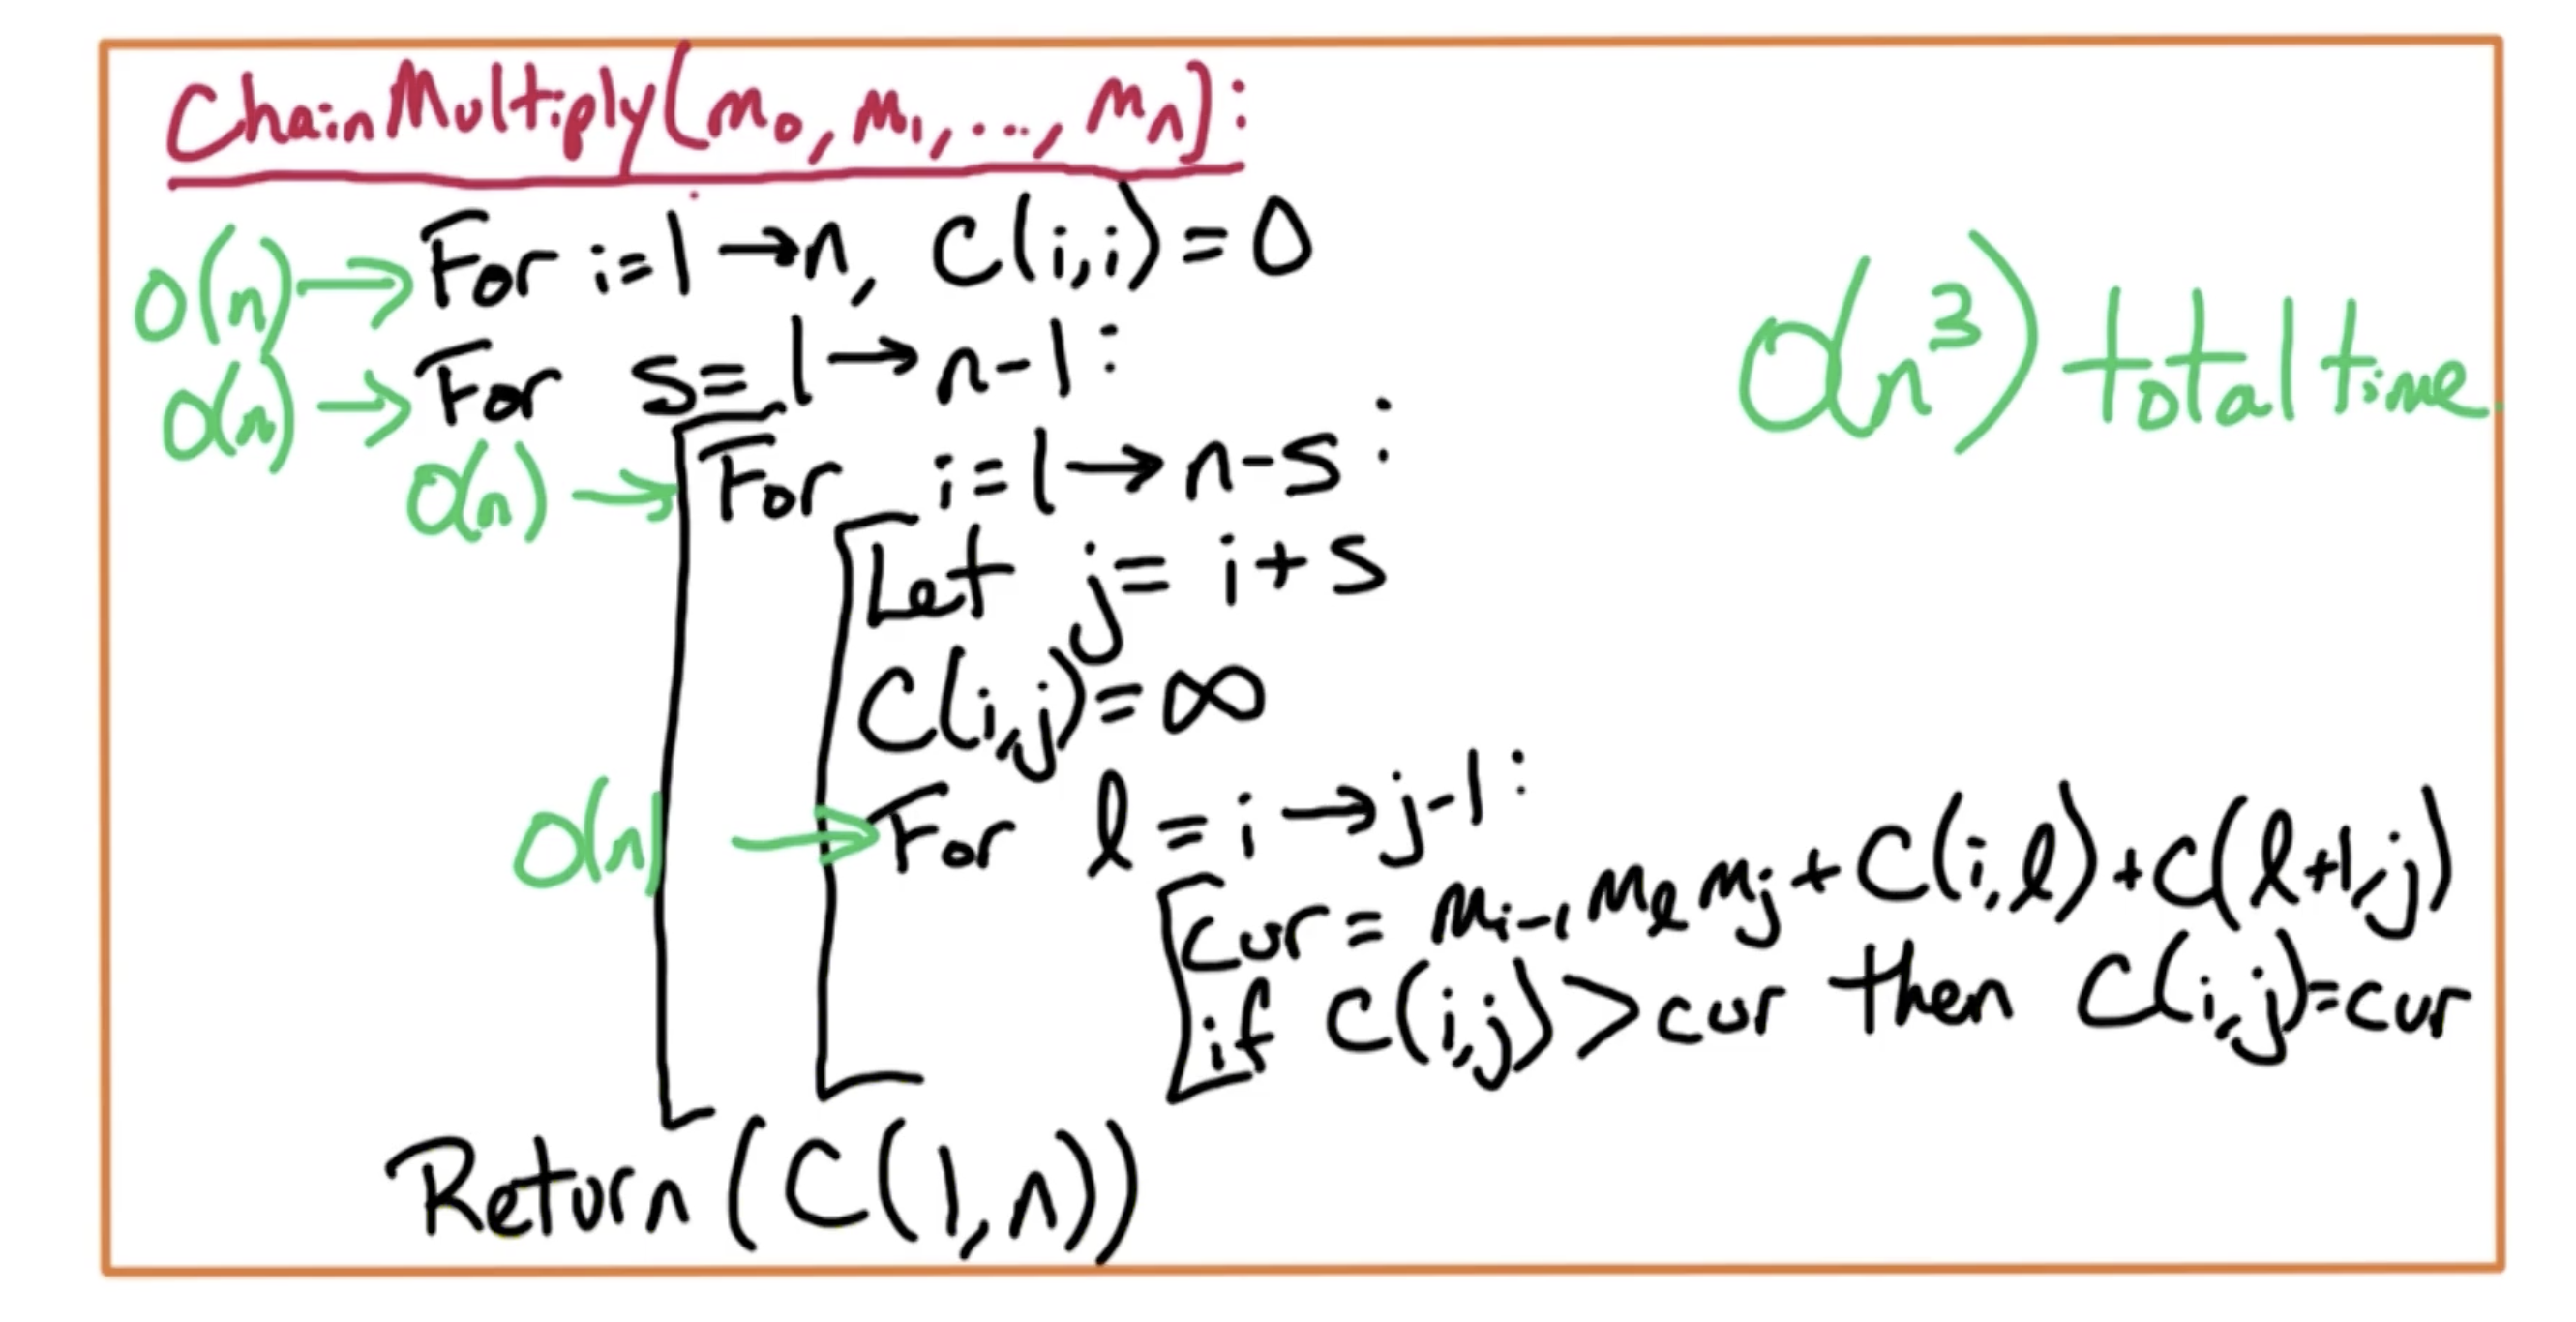 ChainMultiply(m₀, m₁, ..., mₙ):
O(n) → For i=1→n, C(i,i)=0
O(n) → For s=1→n-1:
O(n³) total time
O(n) → For i=1→n-s:
Let j=i+s
C(i,j)=∞
O(n) → For l=i→j-1:
cur= mᵢ₋₁ mₗ mⱼ + C(i,l)+C(l+1,j)
if C(i,j)>cur then C(i,j)=cur
Return(C(1,n))